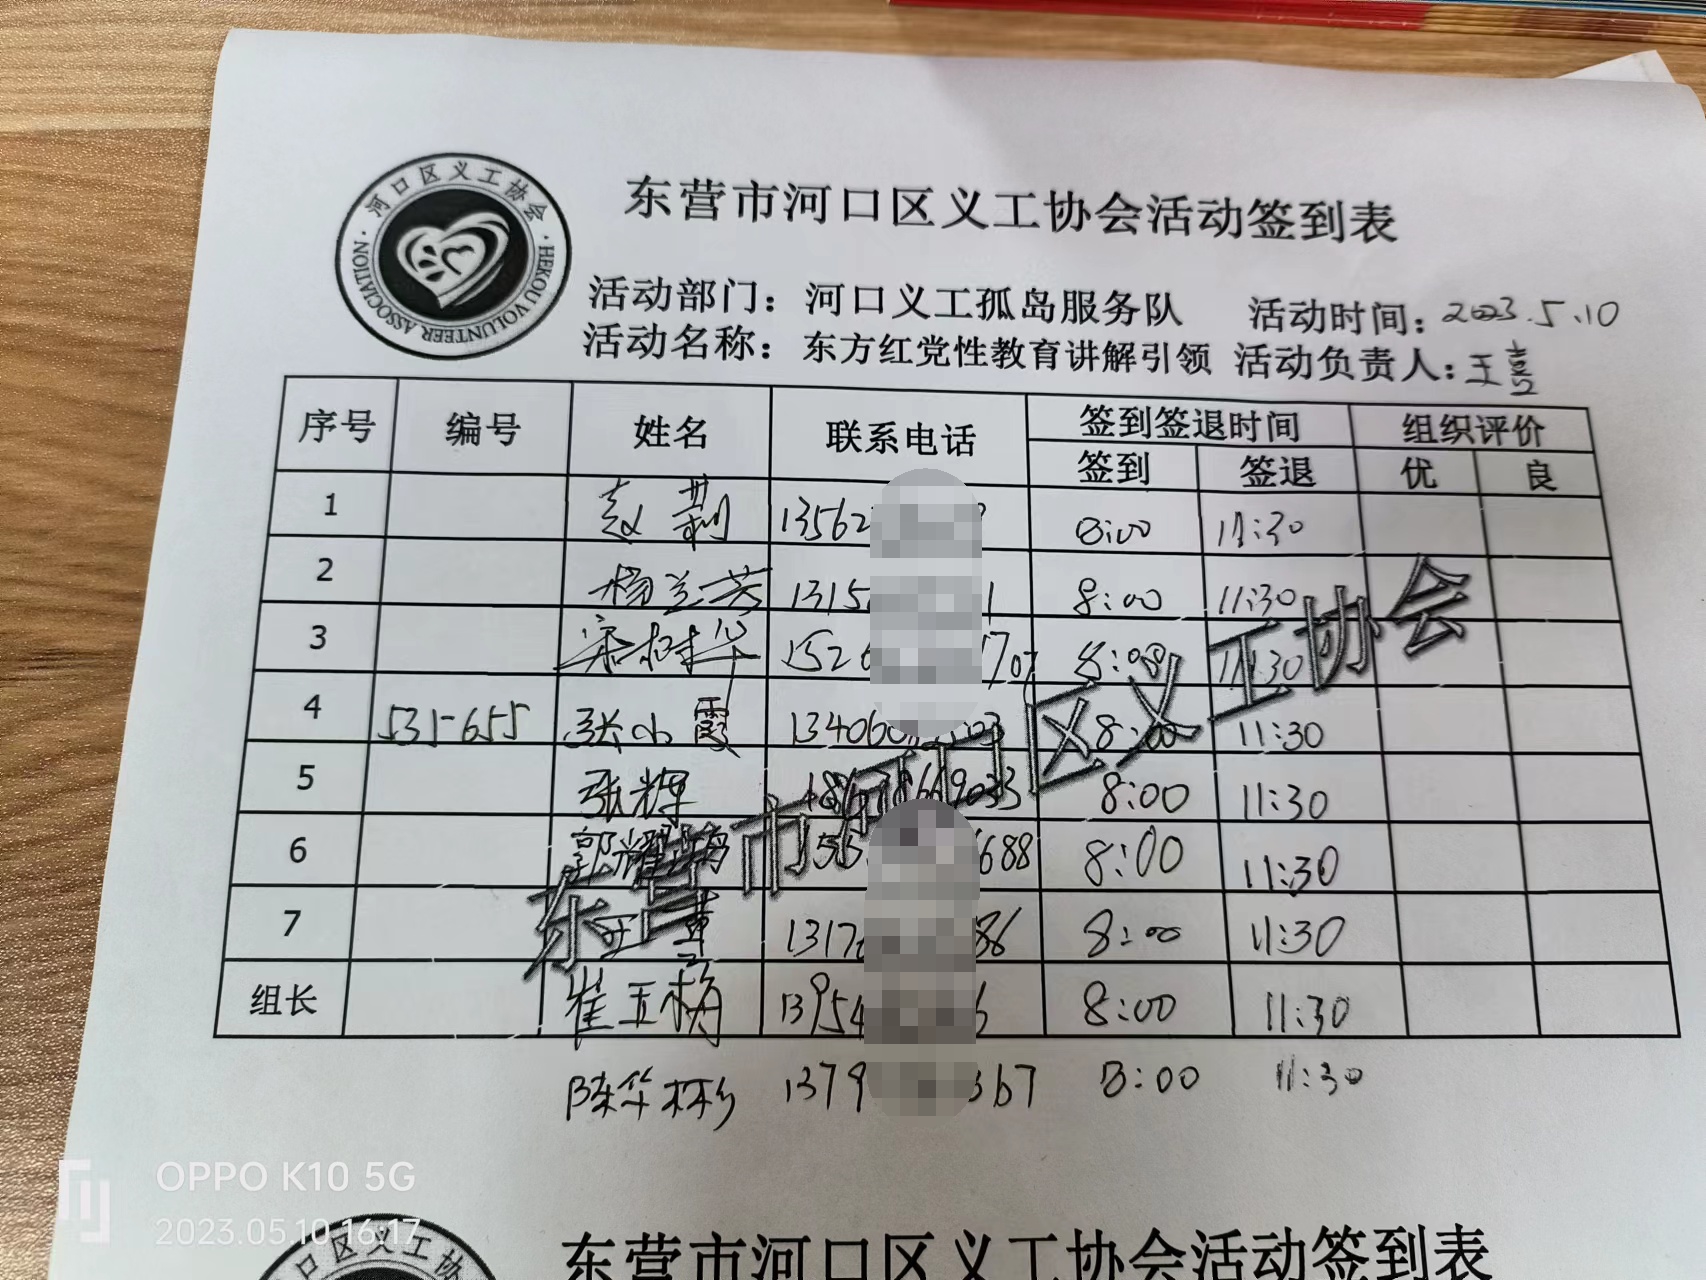 东营市河口区义工协会活动签到表
河口区义工协会
HEKOU VOLUNTEER ASSOCIATION
活动部门：河口义工孤岛服务队 活动时间：2023.5.10
活动名称：东方红党性教育讲解引领 活动负责人：王喜
序号 编号 姓名 联系电话 签到签退时间 组织评价
签到 签退 优 良
1 赵莉 13562 8:00 11:30
2 杨兰芳 1315 1 8:00 11:30
3 宋树华 152 707 8:00 11:30
4 531-655 张小霞 13406 03 8:00 11:30
5 张辉 9033 8:00 11:30
6 郭耀 688 8:00 11:30
7 王 1317 86 8:00 11:30
组长 崔玉梅 13954 6 8:00 11:30
陈华彬 1379 367 8:00 11:30
东营市河口区义工协会
OPPO K10 5G
2023.05.10 16:17
口区义工协
东营市河口区义工协会活动签到表